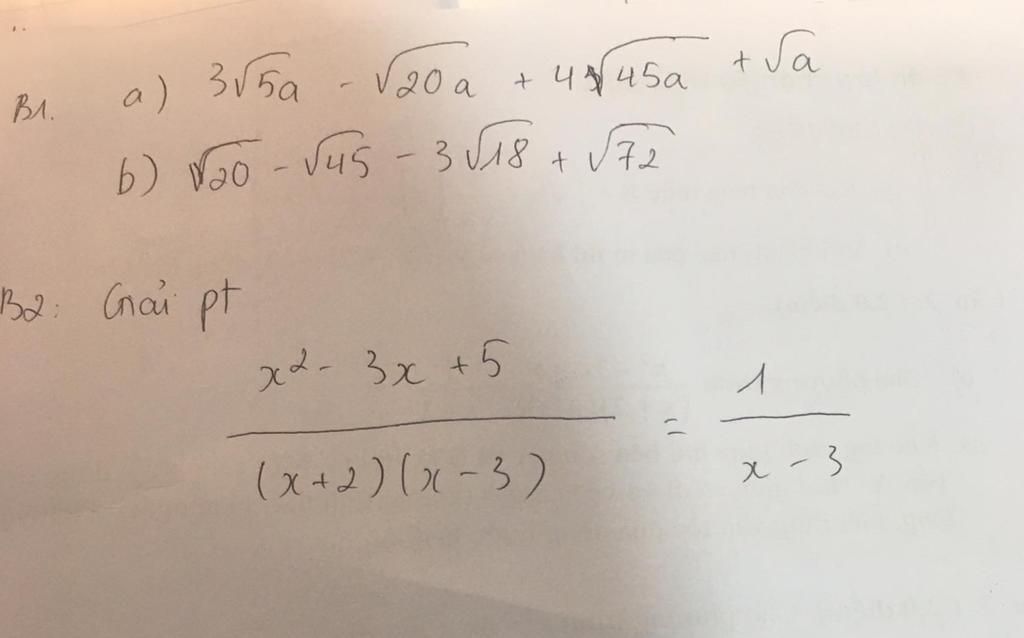 B1. a) 3√5a - √20a + 4√45a + √a
b) √20 - √45 - 3√18 + √72
B2: Giải pt
x² - 3x + 5
(x+2)(x-3)
=
1
x - 3